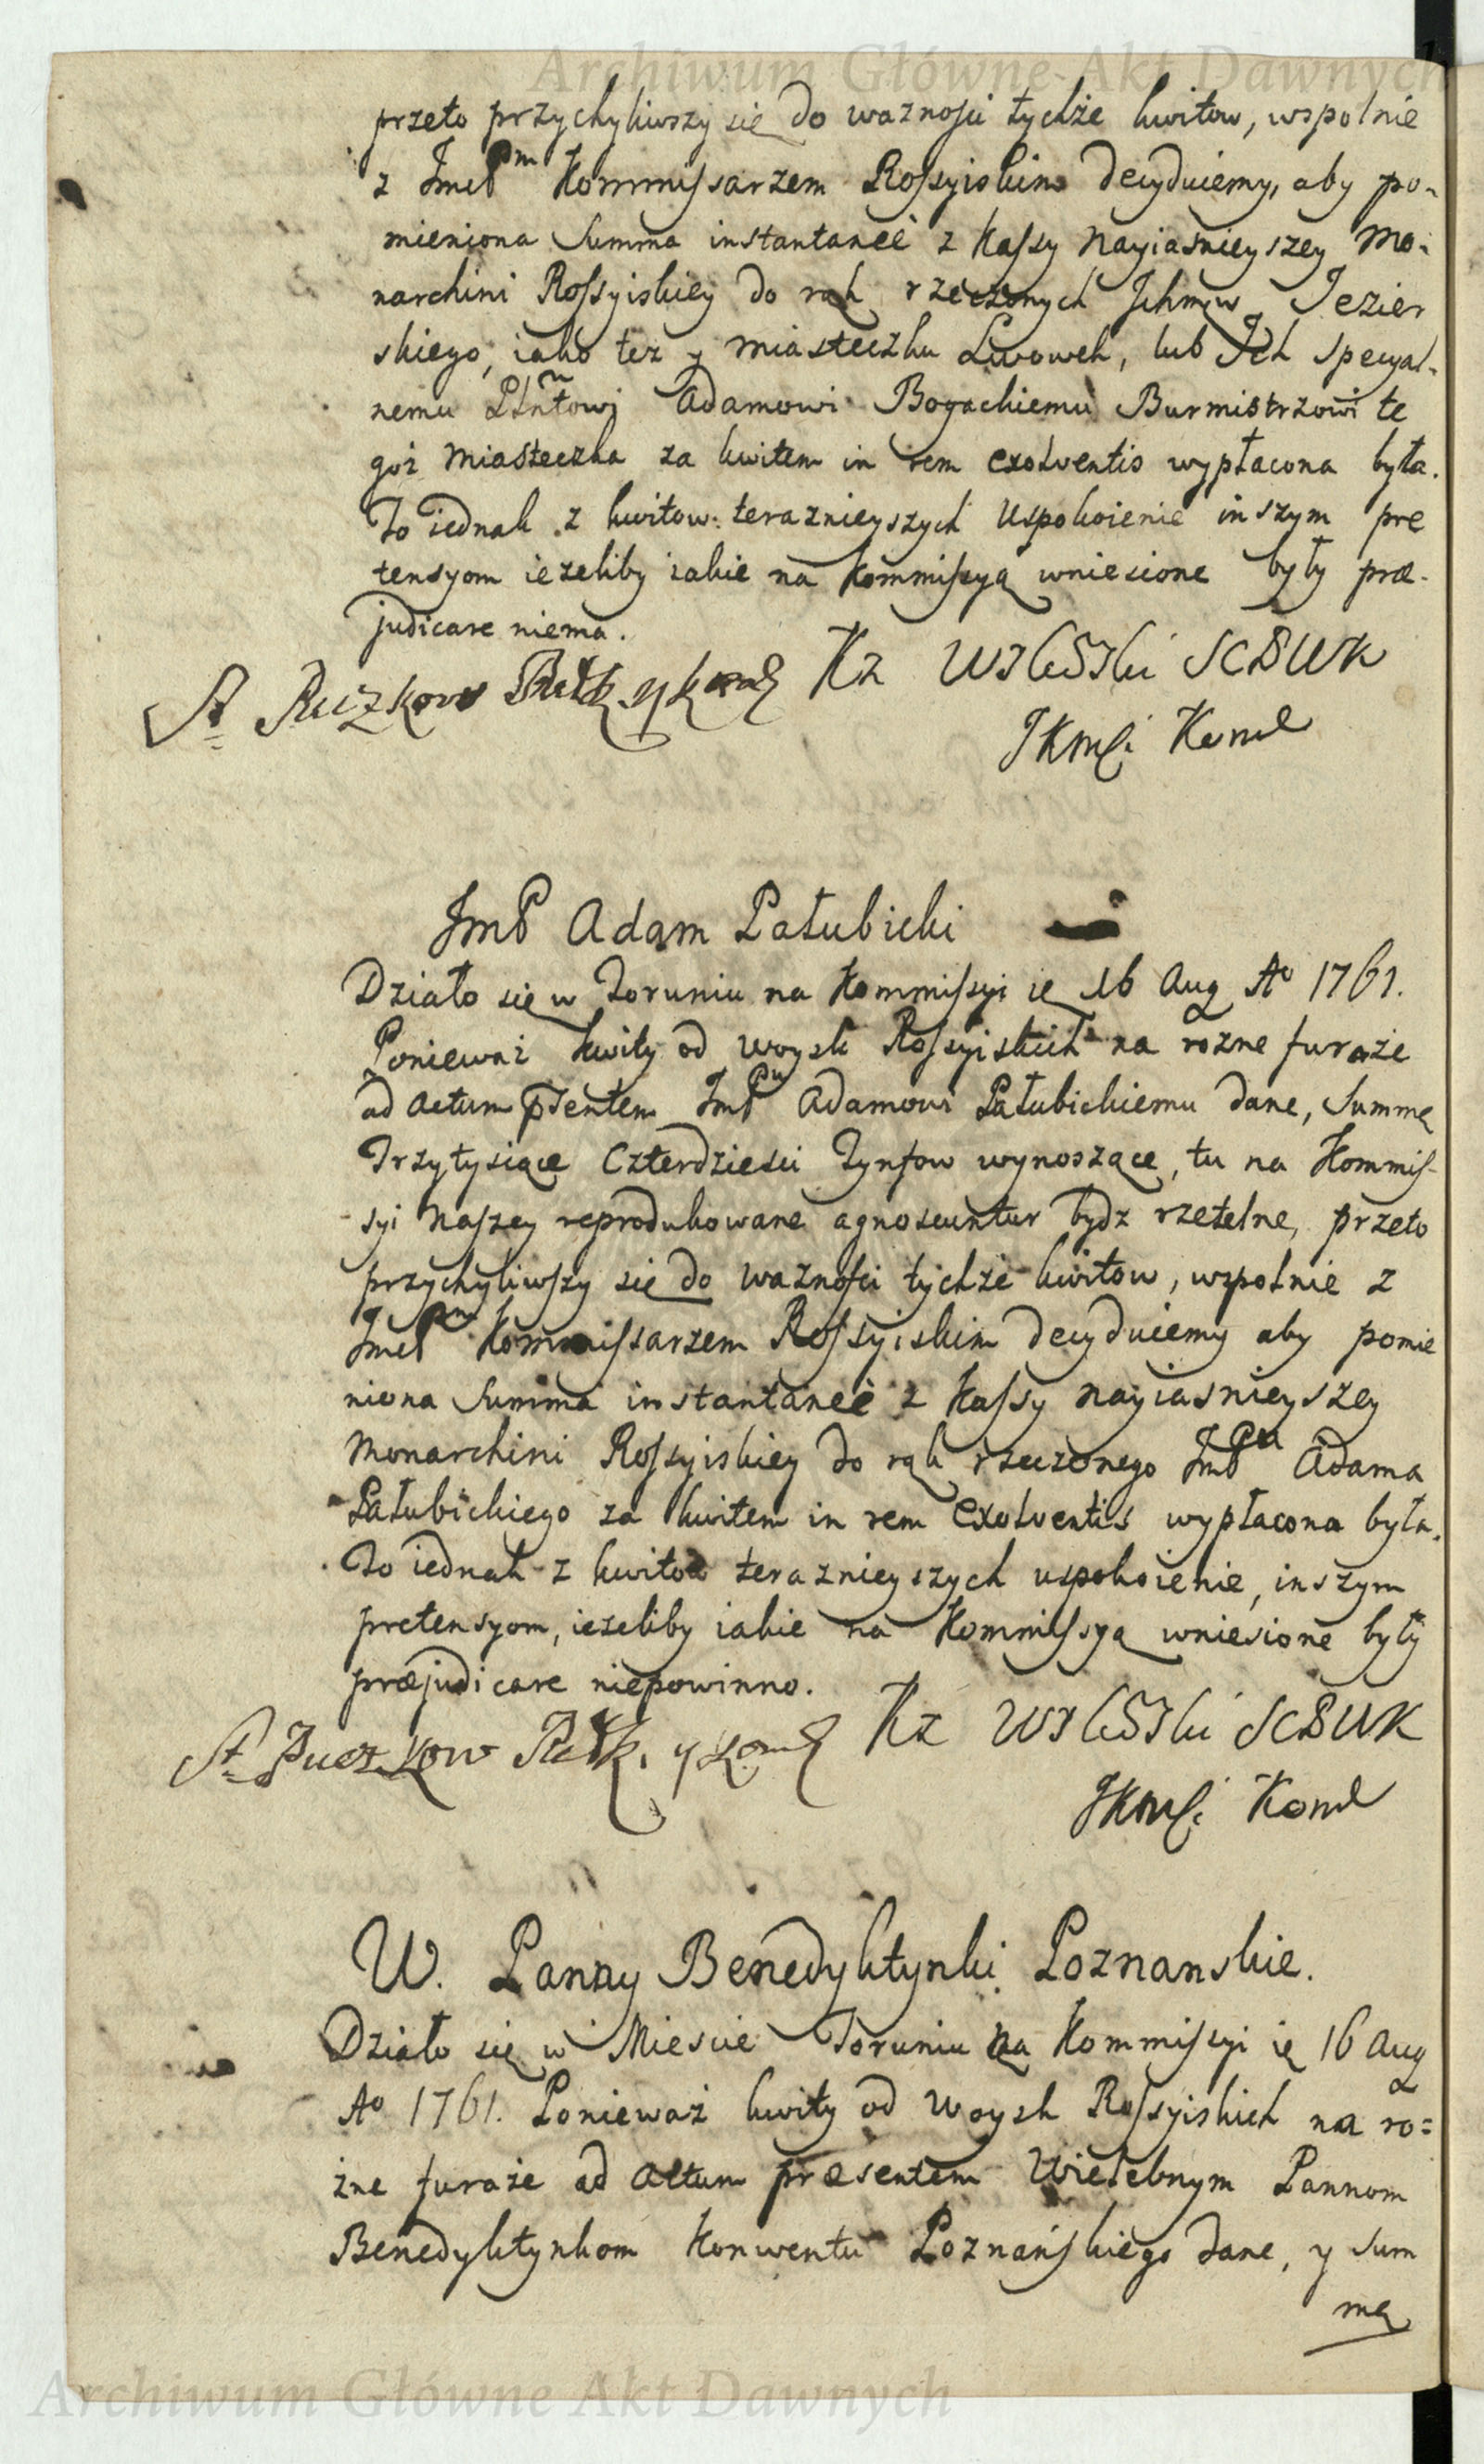 Archiwum Główne Akt Dawnych
przeto przychyliwszy się do waznosci tychże kwitow, wspolnie
z JmcP Pm Kommissarzem Rossyiskim decyduiemy, aby po-
mieniona Summa instantaneé z Kassy Nayiasnieyszey Mo-
narchini Rossyiskiey do rąk rzeczonych Jchmcw Jezier
skiego, iako tez y miasteczku Lwowek, lub Jch specyal-
nemu Plntowi Adamowi Bogackiemu Burmistrzowi te
goż Miasteczka za kwitem in rem exolventis wypłacona była.
To iednak z kwitow teraznieyszych uspokoienie inszym pre
tensyom ieżeliby iakie na Kommissyą wniesione były præ-
judicare niema.
St Puczkow Pułk y kom Kz
JKMci Kom
JmP Adam Pałubicki
Działo się w Toruniu na Kommissyi ie 16 Aug Aº 1761.
Ponieważ kwity od woysk Rossyiskich na rozne furaże
ad actum pśentem JmP Pu Adamowi Pałubickiemu dane, Summę
Trzytysiące Czterdziesci Tynfow wynoszące, tu na Kommis-
syi Naszey reprodukowane agnoscuntur bydz rzetelne, przeto
przychyliwszy się do waznosci tychże kwitow, wspolnie z
JmcP Pm Kommissarzem Rossyiskim decyduiemy aby pomie
niona Summa instantaneé z Kassy Nayiasnieyszey
Monarchini Rossyiskiey do rąk rzeczonego JmP Pa Adama
Pałubickiego za kwitem in rem Exolventis wypłacona była.
To iednak z kwitow teraznieyszych uspokoienie, inszym
pretensyom, ieżeliby iakie na Kommissyą wniesione były
præjudicare niepowinno.
St Puczkow Pułk. y kom Kz
JKMci Kom
W. Panny Benedyktynki Poznanskie.
Działo się w Miescie Toruniu na Kommissyi ie 16 Aug
Aº 1761. Ponieważ kwity od Woysk Rossyiskich na ro=
żne furaże ad Actum præsentem Wielebnym Pannom
Benedyktynkom Konwentu Poznańskiego dane, y Sum
mę
Archiwum Główne Akt Dawnych